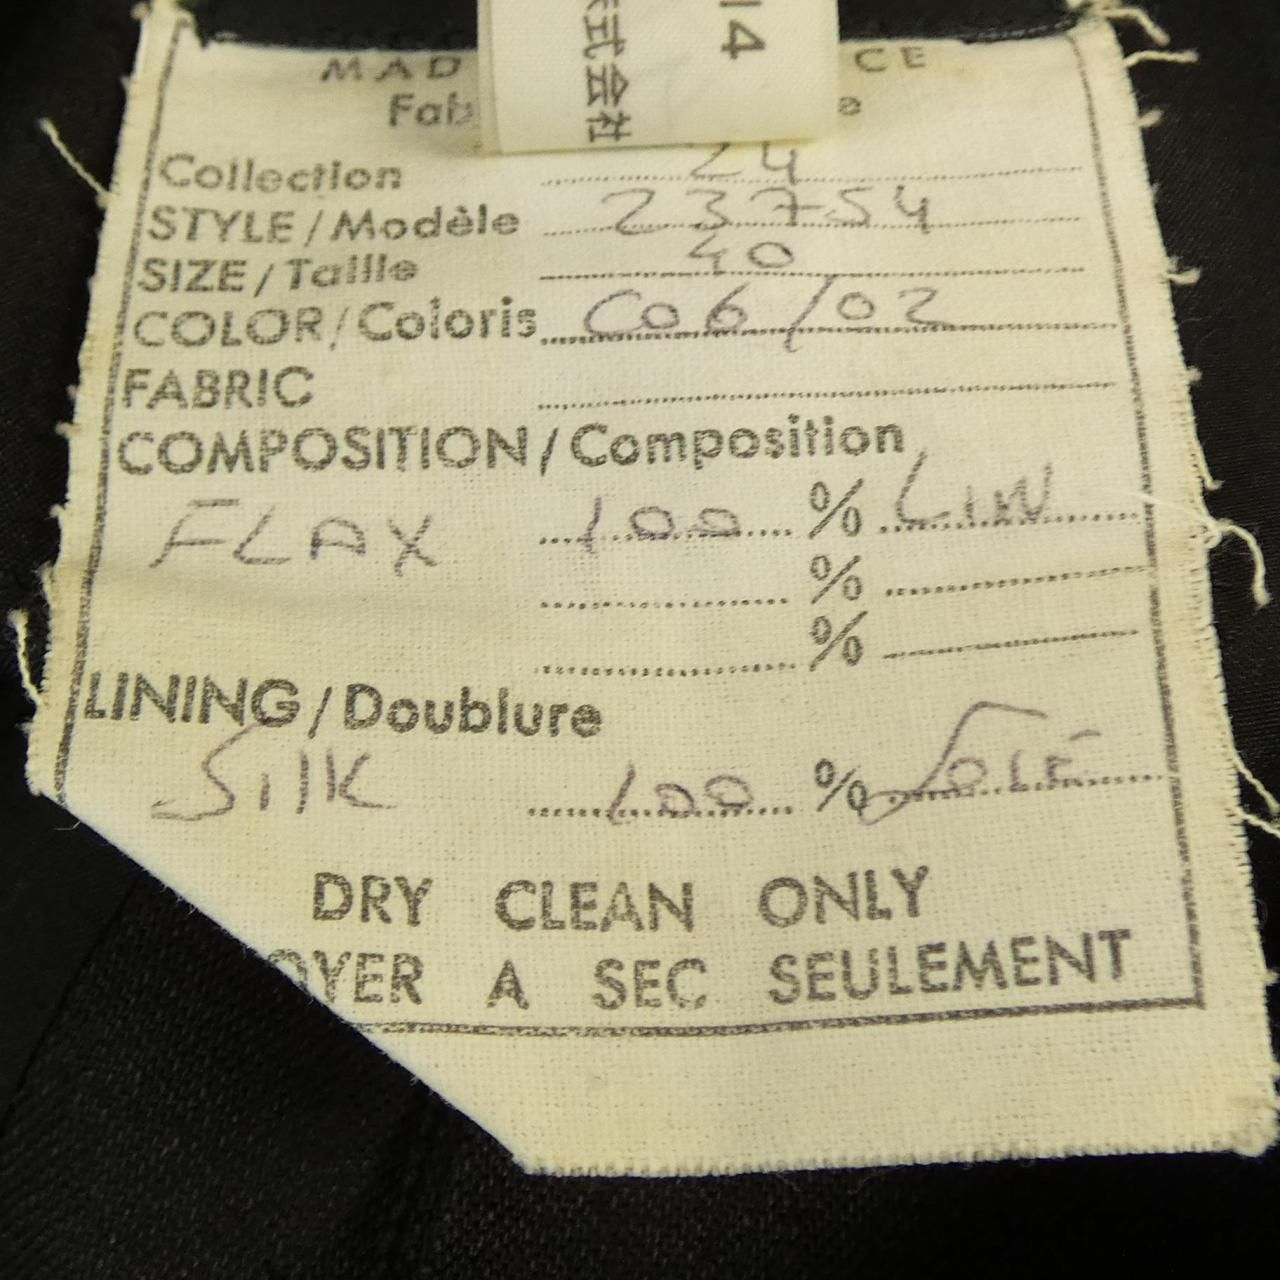 14
式会社
MAD CE
Fab e
Collection 24
STYLE/Modèle 23754
SIZE/Taille 40
COLOR/Coloris C06/02
FABRIC
COMPOSITION/Composition
FLAX 100 % LIN
%
%
LINING/Doublure
Silk 100 % SOIE
DRY CLEAN ONLY
OYER A SEC SEULEMENT